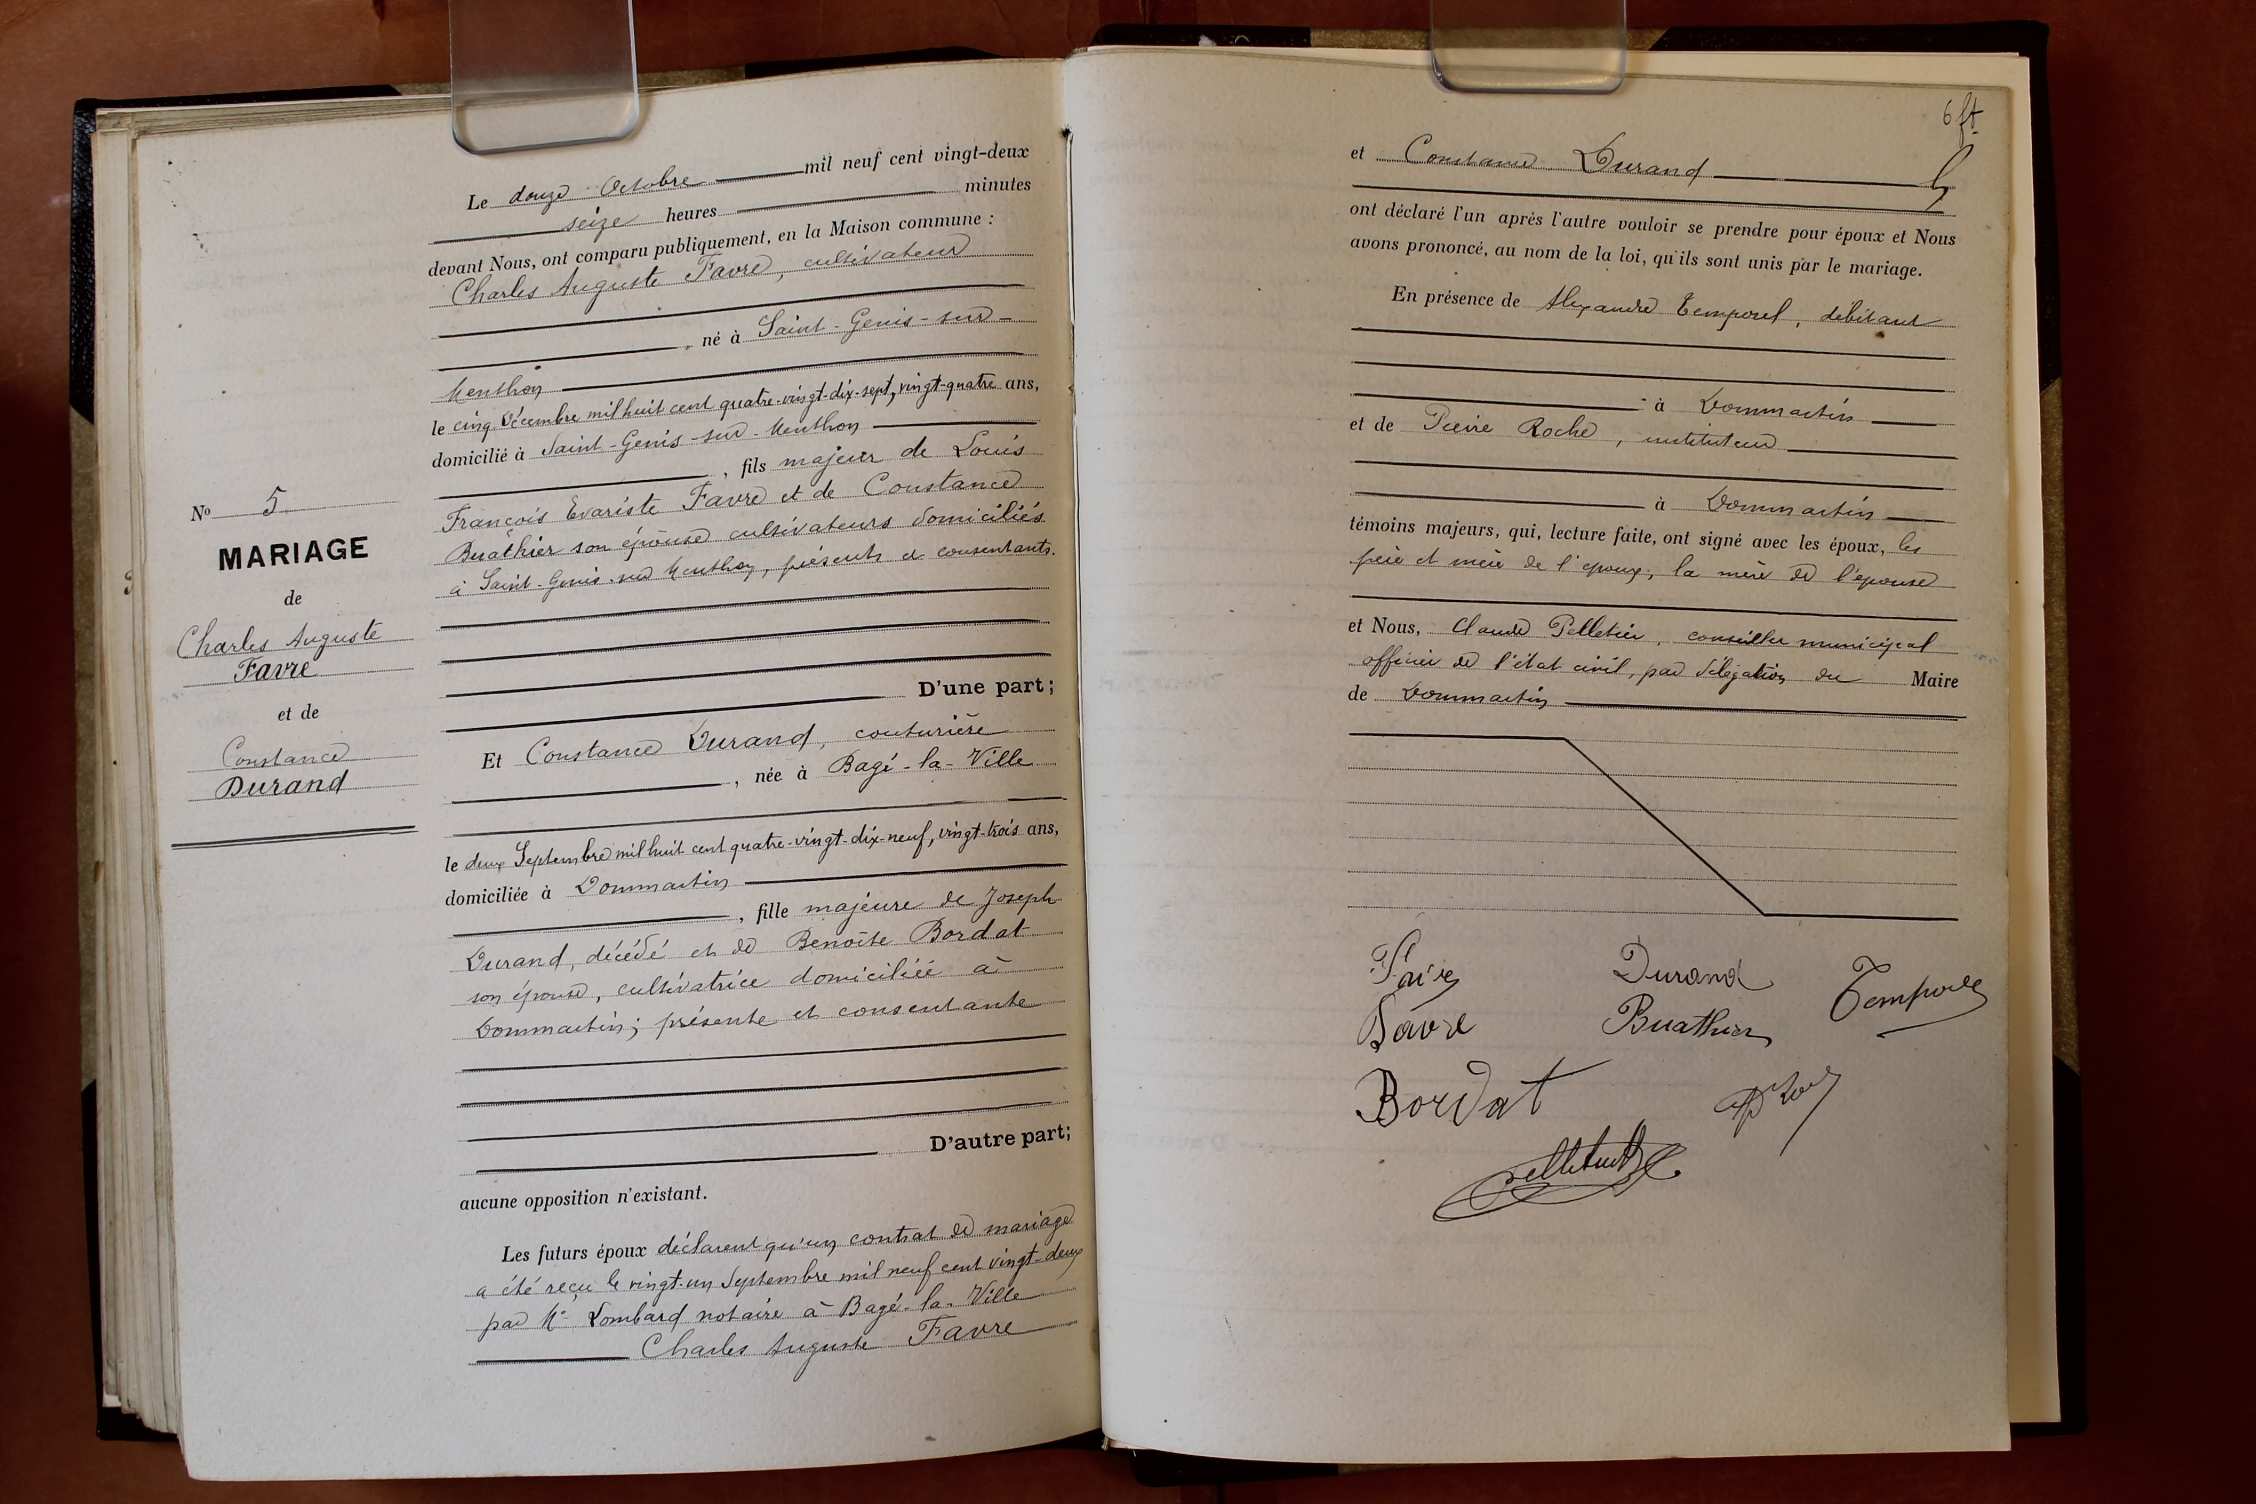 Le douze Octobre mil neuf cent vingt-deux
seize heures minutes
devant Nous, ont comparu publiquement, en la Maison commune :
Charles Auguste Favre, cultivateur
, né à Saint-Genis-sur-
Menthon
le cinq Décembre mil huit cent quatre-vingt-dix-sept, vingt-quatre ans,
domicilié à Saint-Genis-sur-Menthon
, fils majeur de Louis
François Evariste Favre et de Constance
Buathier son épouse cultivateurs domiciliés
à Saint-Genis-sur Menthon, présents et consentants.
D'une part;
Nº 5
MARIAGE
de
Charles Auguste
Favre
et de
Constance
Durand
Et Constance Durand, couturière
, née à Bagé-la-Ville
le deux Septembre mil huit cent quatre-vingt-dix-neuf, vingt-trois ans,
domiciliée à Dommartin
, fille majeure de Joseph
Durand, décédé et de Benoîte Bordat
son épouse, cultivatrice domiciliée à
Dommartin; présente et consentante
D'autre part;
aucune opposition n'existant.
Les futurs époux déclarent qu'un contrat de mariage
a été reçu le vingt-un Septembre mil neuf cent vingt-deux
par Me Lombard notaire à Bagé-la-Ville
Charles Auguste Favre
6 ft
et Constance Durand
ont déclaré l'un après l'autre vouloir se prendre pour époux et Nous
avons prononcé, au nom de la loi, qu'ils sont unis par le mariage.
En présence de Alexandre Temporel, débitant
à Dommartin
et de Pierre Roche, instituteur
à Dommartin
témoins majeurs, qui, lecture faite, ont signé avec les époux, les
père et mère de l'époux, la mère de l'épouse
et Nous, Claude Pelletier, conseiller municipal
officier de l'état civil, par délégation du Maire
de Dommartin
Durand
Favre
Buathier
Bordat